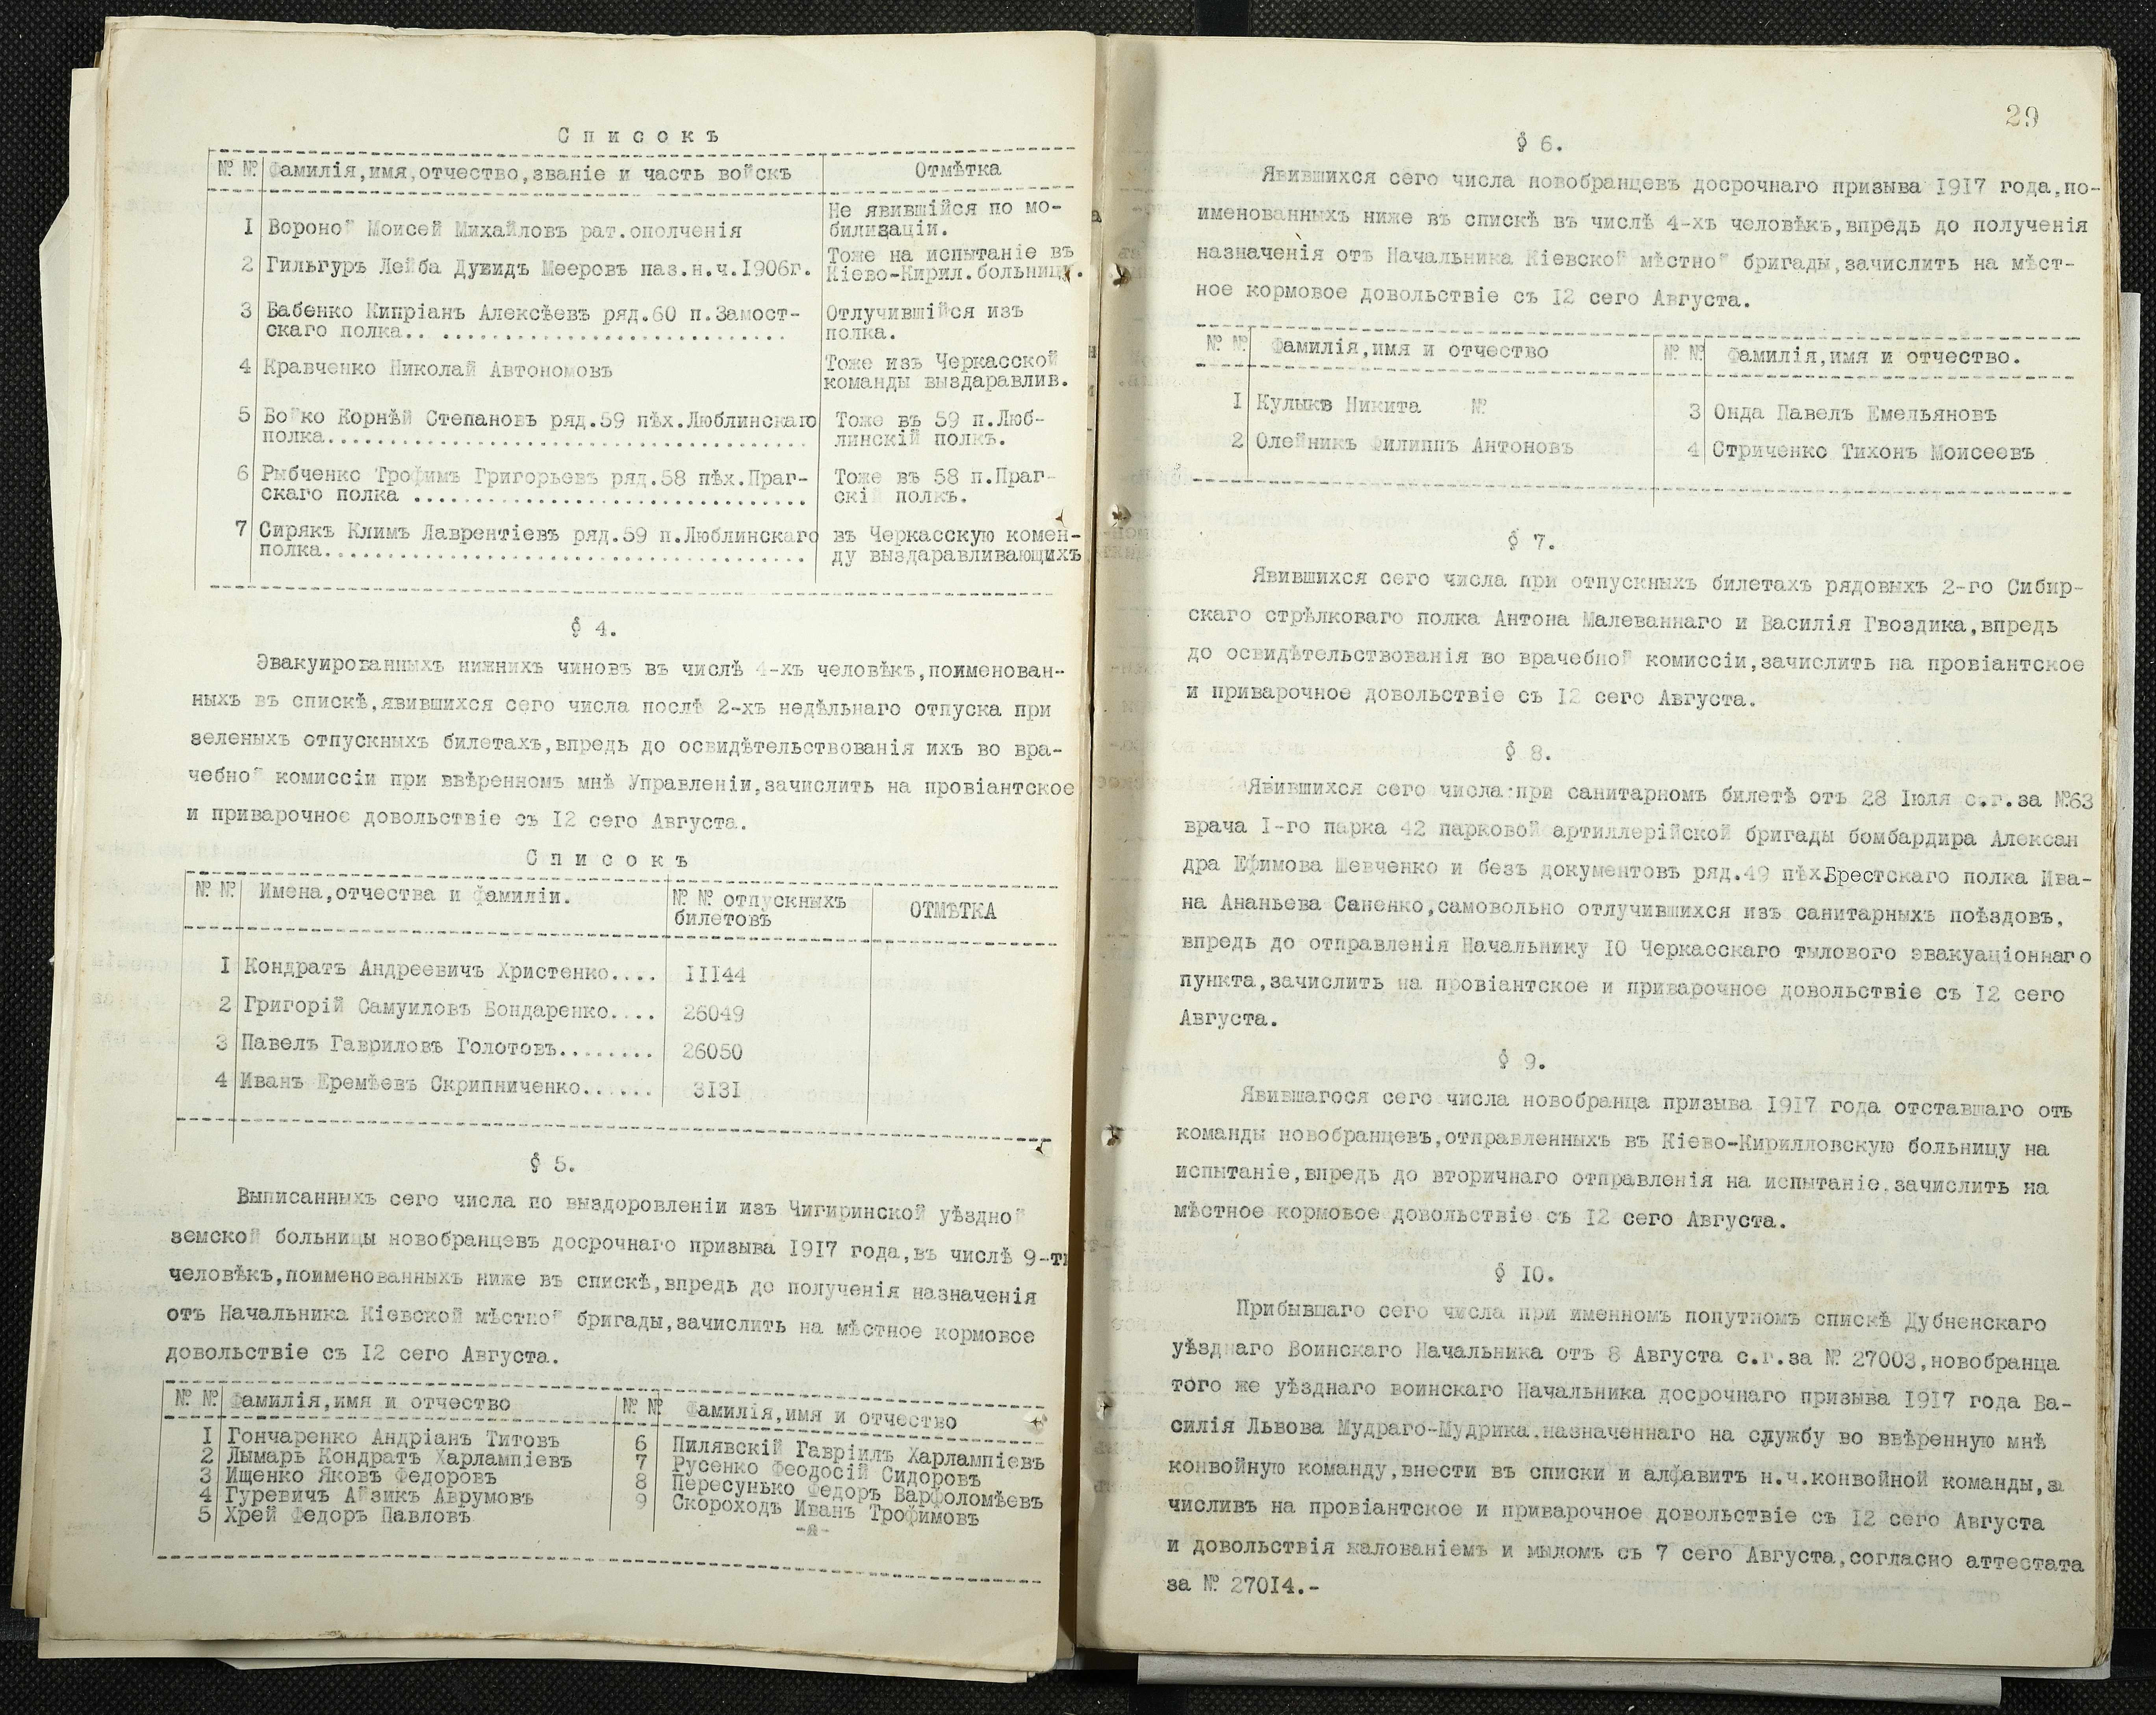 Списокъ
№ № Фамилія,имя,отчество,званіе и часть войскъ Отмѣтка
1 Вороной Моисей Михайловъ рат.ополченія Не явившійся по мо-
билизаціи.
2 Гильгуръ Лейба Дувидъ Мееровъ наз.н.ч.1906г. Тоже на испытаніе въ
Кіево-Кирил.больницу.
3 Бабенко Кипріанъ Алексѣевъ ряд.60 п.Замост- Отлучившійся изъ
скаго полка.. ........................... полка.
4 Кравченко Николай Автономовъ Тоже изъ Черкасской
команды выздаравлив.
5 Бойко Корнѣй Степановъ ряд.59 пѣх.Люблинскаго Тоже въ 59 п.Люб-
полка...................................... линскій полкъ.
6 Рыбченко Трофимъ Григорьевъ ряд.58 пѣх.Праг- Тоже въ 58 п.Праг-
скаго полка ............................... скій полкъ.
7 Сирякъ Климъ Лаврентіевъ ряд.59 п.Люблинскаго въ Черкасскую комен-
полка...................................... ду выздаравливающихъ
§ 4.
Эвакуированныхъ нижнихъ чиновъ въ числѣ 4-хъ человѣкъ,поименован-
ныхъ въ спискѣ,явившихся сего числа послѣ 2-хъ недѣльнаго отпуска при
зеленыхъ отпускныхъ билетахъ,впредь до освидѣтельствованія ихъ во вра-
чебной комиссіи при ввѣренномъ мнѣ Управленіи,зачислить на провіантское
и приварочное довольствіе съ 12 сего Августа.
Списокъ
№ № Имена,отчества и фамиліи. № № отпускныхъ ОТМѢТКА
билетовъ
1 Кондратъ Андреевичъ Христенко.... 11144
2 Григорій Самуиловъ Бондаренко.... 26049
3 Павелъ Гавриловъ Голотовъ........ 26050
4 Иванъ Еремѣевъ Скрипниченко...... 3131
§ 5.
Выписанныхъ сего числа по выздоровленіи изъ Чигиринской уѣздной
земской больницы новобранцевъ досрочнаго призыва 1917 года,въ числѣ 9-ти
человѣкъ,поименованныхъ ниже въ спискѣ,впредь до полученія назначенія
отъ Начальника Кіевской мѣстной бригады,зачислить на мѣстное кормовое
довольствіе съ 12 сего Августа.
№ № Фамилія,имя и отчество № № Фамилія,имя и отчество
1 Гончаренко Андріанъ Титовъ 6 Пилявскій Гавріилъ Харлампіевъ
2 Лымарь Кондратъ Харлампіевъ 7 Русенко Феодосій Сидоровъ
3 Ищенко Яковъ Федоровъ 8 Пересунько Федоръ Варфоломѣевъ
4 Гуревичъ Айзикъ Аврумовъ 9 Скороходъ Иванъ Трофимовъ
5 Хрей Федоръ Павловъ
29
§ 6.
Явившихся сего числа новобранцевъ досрочнаго призыва 1917 года,по-
именованныхъ ниже въ спискѣ въ числѣ 4-хъ человѣкъ,впредь до полученія
назначенія отъ Начальника Кіевской мѣстной бригады,зачислить на мѣст-
ное кормовое довольствіе съ 12 сего Августа.
№ № Фамилія,имя и отчество № № Фамилія,имя и отчество.
1 Кулыкв Никита № 3 Онда Павелъ Емельяновъ
2 Олейникъ Филиппъ Антоновъ 4 Стриченко Тихонъ Моисеевъ
§ 7.
Явившихся сего числа при отпускныхъ билетахъ рядовыхъ 2-го Сибир-
скаго стрѣлковаго полка Антона Малеваннаго и Василія Гвоздика,впредь
до освидѣтельствованія во врачебной комиссіи,зачислить на провіантское
и приварочное довольствіе съ 12 сего Августа.
§ 8.
Явившихся сего числа при санитарномъ билетѣ отъ 28 Іюля с.г.за №63
врача 1-го парка 42 парковой артиллерійской бригады бомбардира Алексан
дра Ефимова Шевченко и безъ документовъ ряд.49 пѣх.Брестскаго полка Ива-
на Ананьева Саненко,самовольно отлучившихся изъ санитарныхъ поѣздовъ,
впредь до отправленія Начальнику 10 Черкасскаго тылового эвакуаціоннаго
пункта,зачислить на провіантское и приварочное довольствіе съ 12 сего
Августа.
§ 9.
Явившагося сего числа новобранца призыва 1917 года отставшаго отъ
команды новобранцевъ,отправленныхъ въ Кіево-Кирилловскую больницу на
испытаніе,впредь до вторичнаго отправленія на испытаніе,зачислить на
мѣстное кормовое довольствіе съ 12 сего Августа.
§ 10.
Прибывшаго сего числа при именномъ попутномъ спискѣ Дубненскаго
уѣзднаго Воинскаго Начальника отъ 8 Августа с.г.за № 27003,новобранца
того же уѣзднаго воинскаго Начальника досрочнаго призыва 1917 года Ва-
силія Львова Мудраго-Мудрика,назначеннаго на службу во ввѣренную мнѣ
конвойную команду,внести въ списки и алфавитъ н.ч.конвойной команды,за
числивъ на провіантское и приварочное довольствіе съ 12 сего Августа
и довольствія жалованіемъ и мыломъ съ 7 сего Августа,согласно аттестата
за № 27014.-